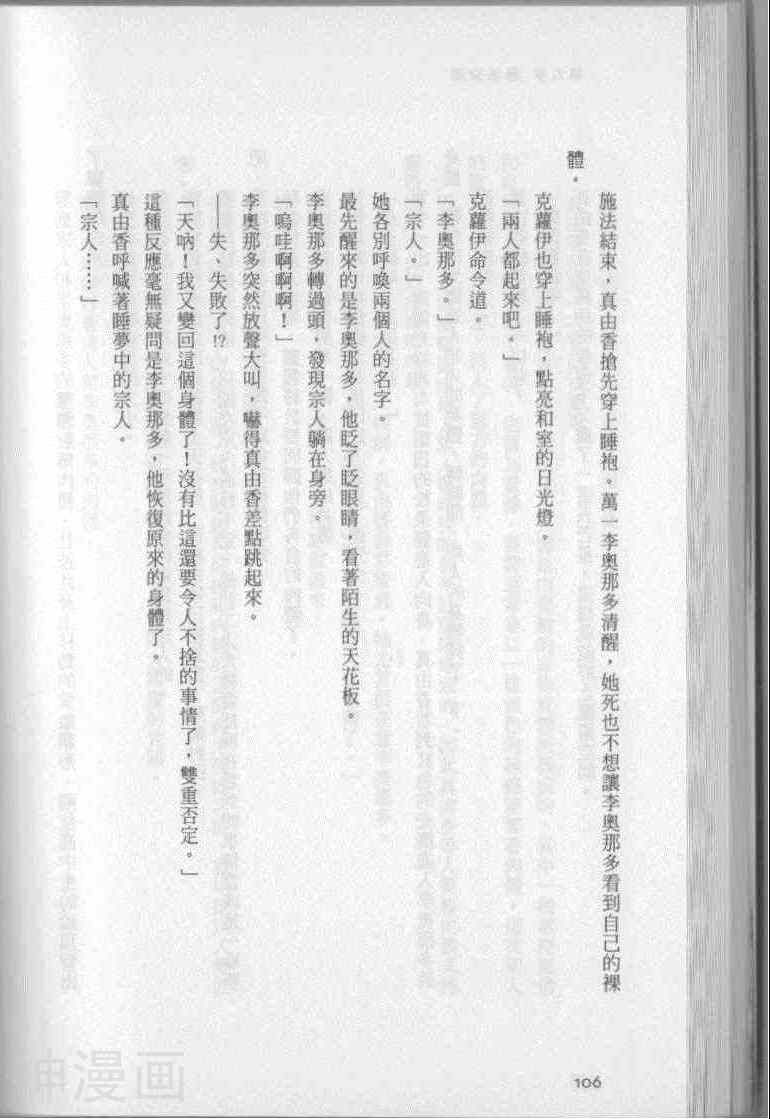 施法結束，真由香搶先穿上睡袍。萬一李奧那多清醒，她死也不想讓李奧那多看到自己的裸
體。
克蘿伊也穿上睡袍，點亮和室的日光燈。
「兩人都起來吧。」
克蘿伊命令道。
「李奧那多。」
「宗人。」
她各別呼喚兩個人的名字。
最先醒來的是李奧那多，他眨了眨眼睛，看著陌生的天花板。
李奧那多轉過頭，發現宗人躺在身旁。
「嗚哇啊啊啊！」
李奧那多突然放聲大叫，嚇得真由香差點跳起來。
——失、失敗了!?
「天吶！我又變回這個身體了！沒有比這還要令人不捨的事情了，雙重否定。」
這種反應毫無疑問是李奧那多，他恢復原來的身體了。
真由香呼喊著睡夢中的宗人。
「宗人……」
106
漫画